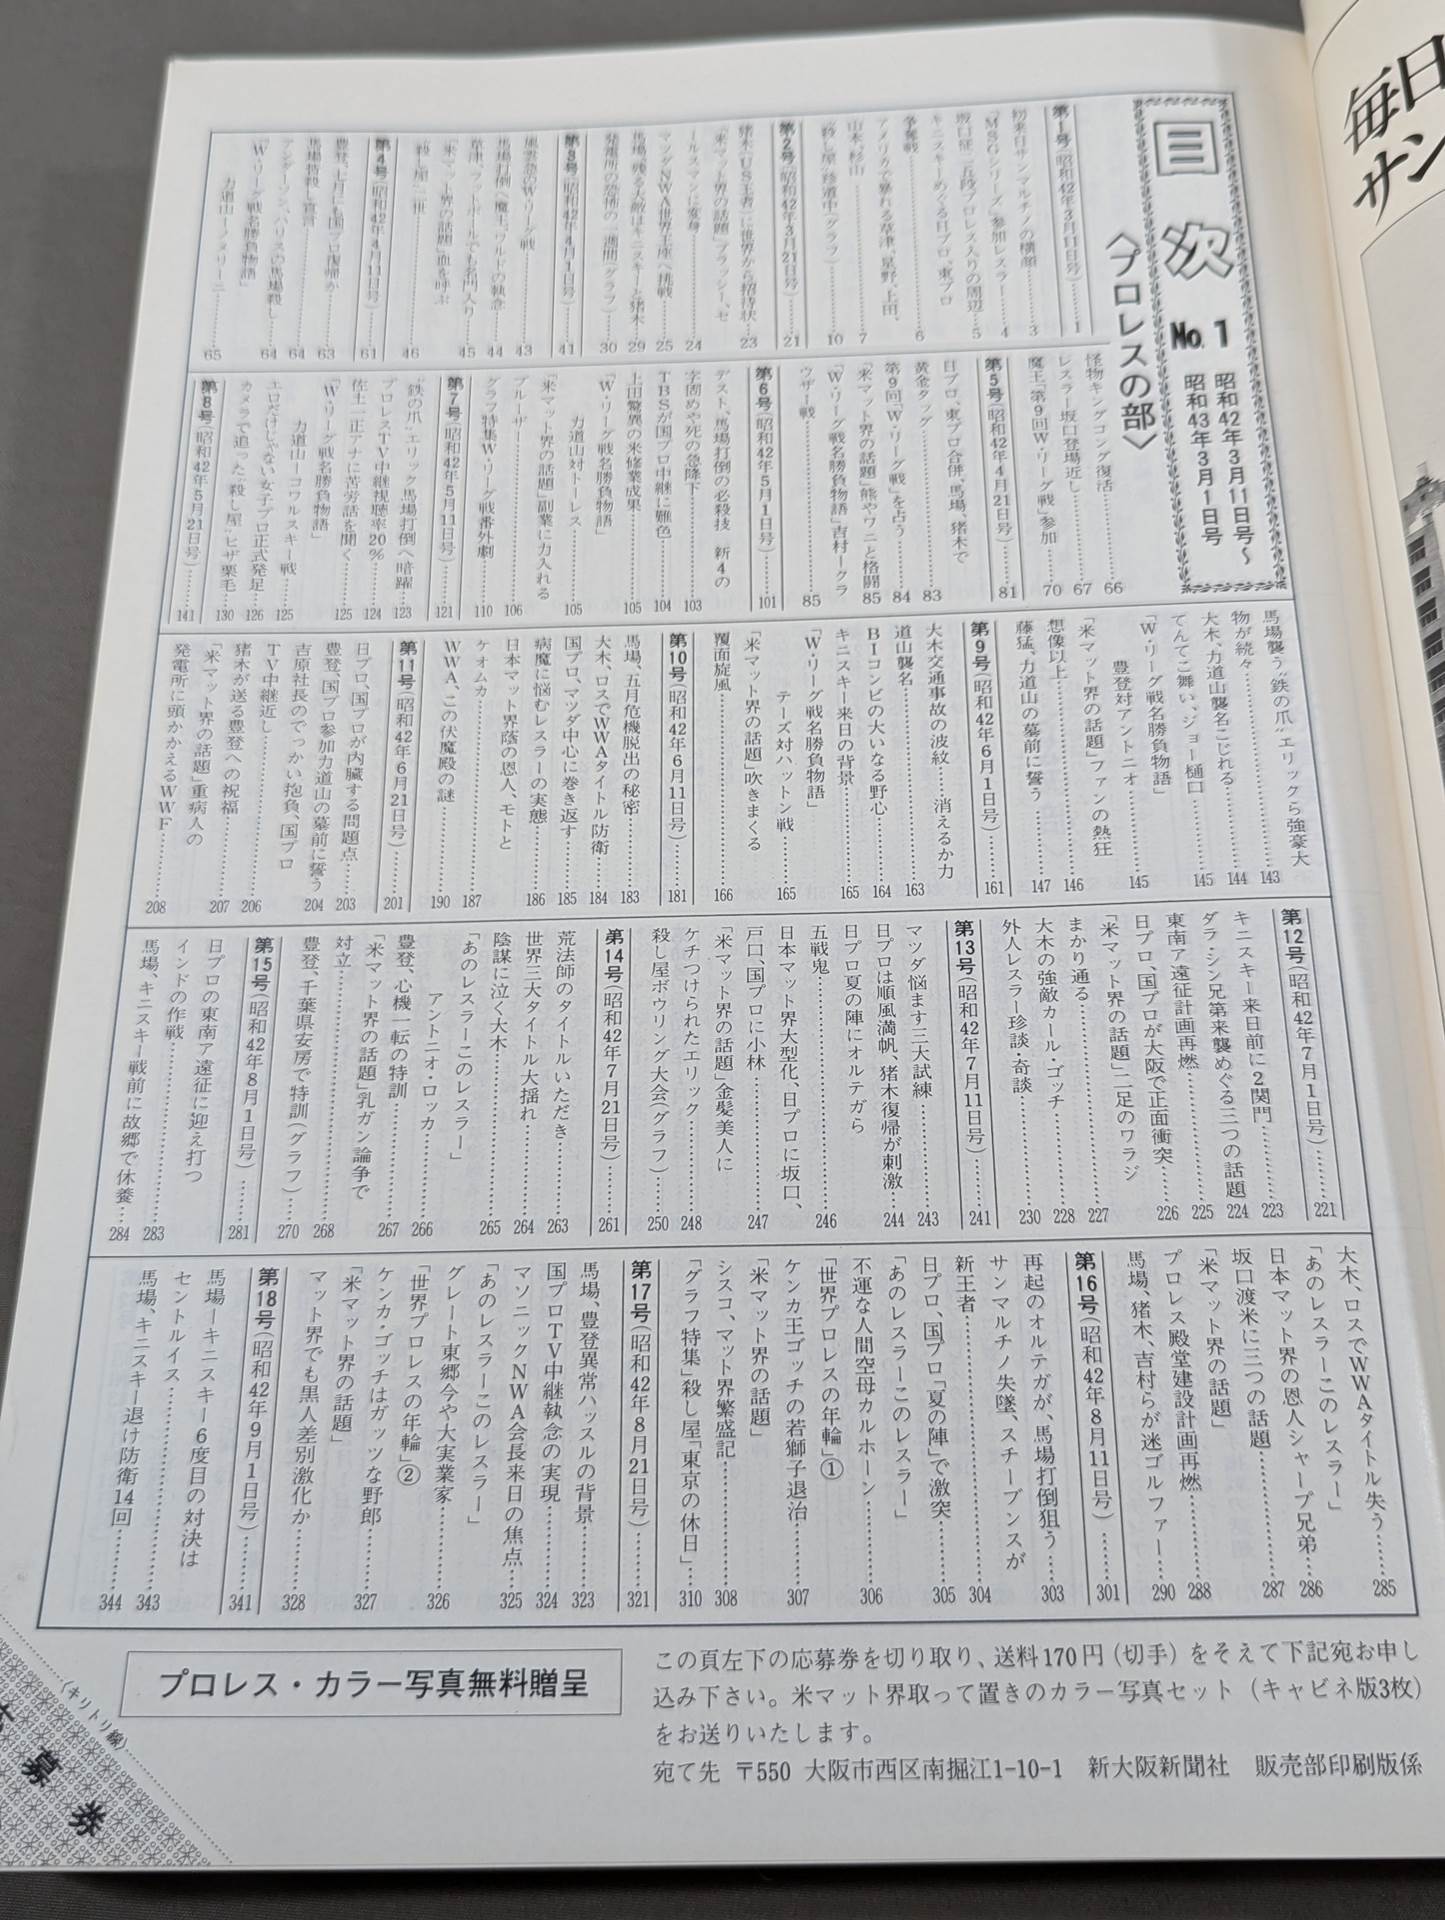 目次 No.1
昭和42年3月11日号〜
昭和43年3月1日号
〈プロレスの部〉
第1号(昭和42年3月11日号)……1
初来日サンマルチノの横顔……3
「MSGシリーズ」参加レスラー……4
坂口征二五段プロレス入りの周辺……5
キニスキーめぐる日プロ、東プロ
争奪戦……6
アメリカで暴れる草津、星野、上田、
山本、杉山……7
“殺し屋”珍道中(グラフ)……10
第2号(昭和42年3月21日号)……21
猪木(US王者)に世界から招待状……23
「米マット界の話題」ブラッシー、セ
ールスマンに変身……24
マツダNWA世界王座へ挑戦……25
馬場、残る大敵はキニスキーと猪木……29
発電所の恐怖の一週間(グラフ)……30
第3号(昭和42年4月1日号)……41
風雲急のW・リーグ戦……43
馬場打倒へ魔王、ワルドの執念……44
草津、フットボールでも名門入り……45
「米マット界の話題」血を呼ぶ
殺し屋二世……46
第4号(昭和42年4月11日号)……61
豊登、七月に王国プロ復帰か……63
馬場挌殺し宣言
アンダーソン、ハリスの馬場殺し……64
「W・リーグ戦名勝負物語」……64
力道山ーアメリーニ……65
怪物キングコング復活……66
レスラー坂口登場近し……67
魔王「第9回W・リーグ戦」参加……70
第5号(昭和42年4月21日号)……81
日プロ、東プロ合併、馬場、猪木で
黄金タッグ……83
第9回「W・リーグ戦」を占う……84
「米マット界の話題」熊やワニと格闘……85
「W・リーグ戦名勝負物語」吉村ークラ
ウザー戦……85
第6号(昭和42年5月1日号)……101
デスト、馬場打倒の必殺技 新4の
字固めや死の急降下……103
TBSが国プロ中継に難色……104
上田驚異の米修業成果……105
「W・リーグ戦名勝負物語」
力道山対トーレス……105
「米マット界の話題」副業に力入れる
ブルーザー……106
グラフ特集W・リーグ戦番外劇……110
第7号(昭和42年5月11日号)……121
“鉄の爪”エリック馬場打倒へ暗躍……123
プロレスTV中継視聴率20%……124
佐土一正アナに苦労話を聞く……125
「W・リーグ戦名勝負物語」
力道山ーコワルスキー戦……125
エロだけじゃない女子プロ正式発足……126
カメラで追った“殺し屋”ヒザ栗毛……130
第8号(昭和42年5月21日号)……141
馬場襲う“鉄の爪”エリックら強豪大
物が続々……143
大木、力道山襲名こじれる……144
てんてこ舞い、ジョー樋口……145
「W・リーグ戦名勝負物語」
豊登対アントニオ……145
「米マット界の話題」ファンの熱狂
想像以上……146
藤猛、力道山の墓前に誓う……147
第9号(昭和42年6月1日号)……161
大木交通事故の波紋……消えるか力
道山襲名……163
BIコンビの大いなる野心……164
キニスキー来日の背景……165
「W・リーグ戦名勝負物語」
テーズ対ハットン戦……165
「米マット界の話題」吹きまくる
覆面旋風……166
第10号(昭和42年6月11日号)……181
馬場、五月危機脱出の秘密……183
大木、ロスでWWAタイトル防衛……184
国プロ、マツダ中心に巻き返す……185
病魔に悩むレスラーの実態……186
日本マット界蔭の恩人、モトと
ケオムカ……187
WWA、この伏魔殿の謎……190
第11号(昭和42年6月21日号)……201
日プロ、国プロが内臓する問題点……203
豊登、国プロ参加力道山の墓前に誓う……204
吉原社長のでっかい抱負、国プロ
TV中継近し
猪木が送る豊登への祝福……206
「米マット界の話題」重病人の……207
発電所に頭かかえるWWF……208
第12号(昭和42年7月1日号)……221
キニスキー来日前に2関門……223
ダラ・シン兄第来襲めぐる三つの話題……224
東南ア遠征計画再燃……225
日プロ、国プロが大阪で正面衝突……226
「米マット界の話題」二足のワラジ
まかり通る……227
大木の強敵カール・ゴッチ……228
外人レスラー珍談・奇談……230
第13号(昭和42年7月11日号)……241
マツダ悩ます三大試練……243
日プロは順風満帆、猪木復帰が刺激……244
日プロ夏の陣にオルテガら
五戦鬼……246
日本マット界大型化、日プロに坂口、
戸口、国プロに小林……247
「米マット界の話題」金髪美人に
ケチつけられたエリック……248
殺し屋ボウリング大会(グラフ)……250
第14号(昭和42年7月21日号)……261
荒法師のタイトルいただき……263
世界三大タイトル大揺れ……264
陰謀に泣く大木……265
「あのレスラーこのレスラー」
アントニオ・ロッカ……266
豊登、心機一転の特訓……267
「米マット界の話題」乳ガン論争で
対立……268
豊登、千葉県安房で特訓(グラフ)……270
第15号(昭和42年8月1日号)……281
日プロの東南ア遠征に迎え打つ
インドの作戦……283
馬場、キニスキー戦前に故郷で休養……284
大木、ロスでWWAタイトル失う……285
「あのレスラーこのレスラー」
日本マット界の恩人シャープ兄弟……286
坂口渡米に三つの話題……287
「米マット界の話題」
プロレス殿堂建設計画再燃……288
馬場、猪木、吉村らが迷ゴルファー……290
第16号(昭和42年8月11日号)……301
再起のオルテガが、馬場打倒狙う……303
サンマルチノ失墜、スチーブンスが
新王者……304
日プロ、国プロ「夏の陣」で激突……305
「あのレスラーこのレスラー」
不運な人間空母カルホーン……306
「世界プロレスの年輪」①
ケンカ王ゴッチの若獅子退治……307
「米マット界の話題」
シスコ、マット界繁盛記……308
「グラフ特集」殺し屋「東京の休日」……310
第17号(昭和42年8月21日号)……321
馬場、豊登異常ハッスルの背景……323
国プロTV中継執念の実現……324
マソニックNWA会長来日の焦点……325
「あのレスラーこのレスラー」
グレート東郷今や大実業家……326
「世界プロレスの年輪」②
ケンカ・ゴッチはガッツな野郎……327
「米マット界の話題」
マット界でも黒人差別激化か……328
第18号(昭和42年9月1日号)……341
馬場ーキニスキー6度目の対決は
セントルイス……343
馬場、キニスキー退け防衛14回……344
プロレス・カラー写真無料贈呈
この頁左下の応募券を切り取り、送料170円(切手)をそえて下記宛お申し
込み下さい。米マット界取って置きのカラー写真セット(キャビネ版3枚)
をお送りいたします。
宛て先 〒550 大阪市西区南掘江1-10-1 新大阪新聞社 販売部印刷版係
(キリトリ線)
募券
毎日
サン